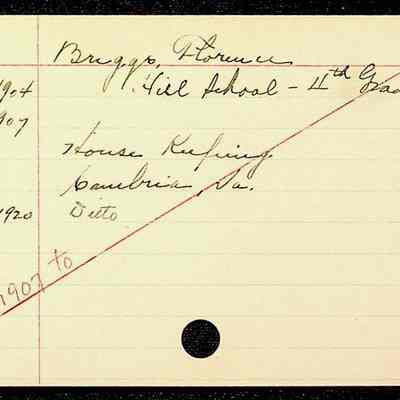 Briggs, Florence
1904 Hill School - 4th Grad
1907
House Keeping
Cambria, Va.
1920 Ditto
1907 to